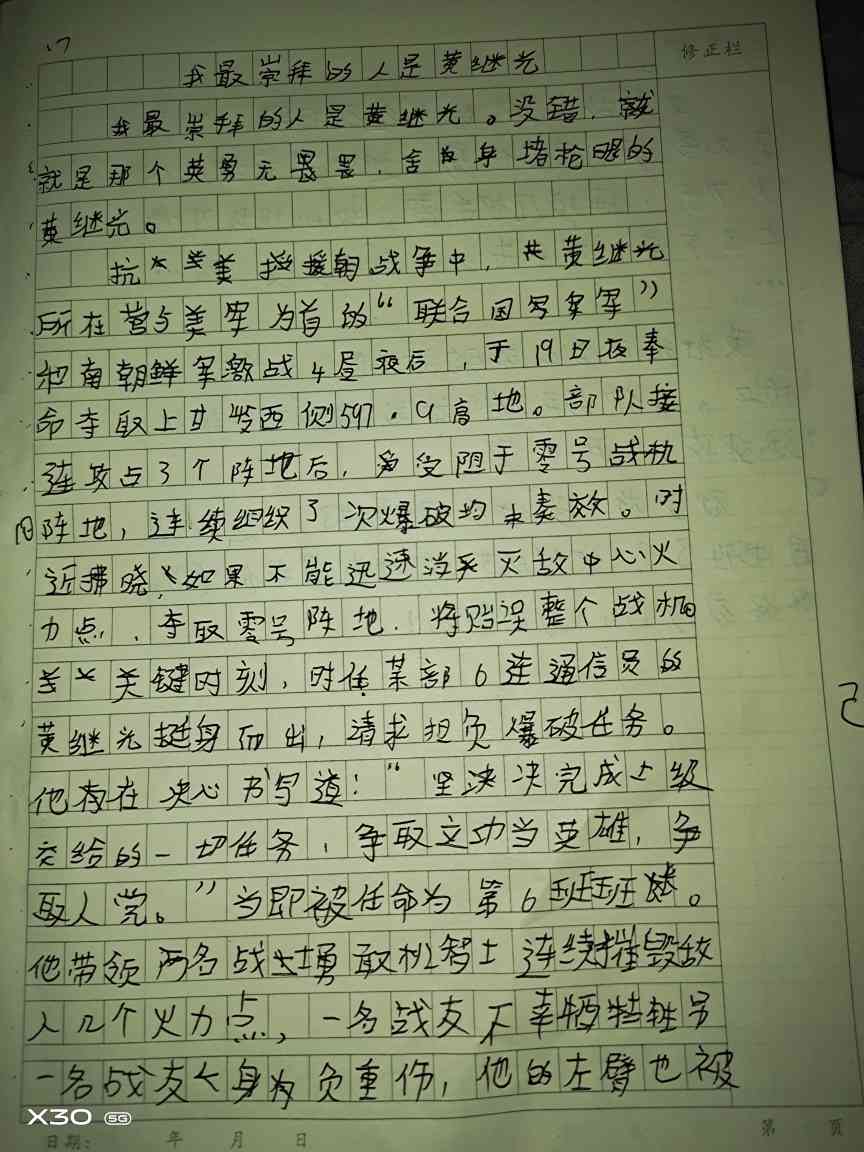 17
修正栏
我最崇拜的人是黄继光
我最崇拜的人是黄继光。没错,就
就是那个英勇无畏畏,舍身堵枪眼的
黄继光。
抗美援援朝战争中,黄继光
所在营与美军为首的“联合国军”
和南朝鲜军激战4昼夜后,于19日夜奉
命夺取上甘岭西侧597.9高地。部队接
连攻占3个阵地后,受阻于零号战机
阵地,连续组织3次爆破均未奏效。时
近拂晓,如果不能迅速消灭敌中心火
力点,夺取零号阵地,将贻误整个战机
关键时刻,时任某部6连通信员的
黄继光挺身而出,请求担负爆破任务。
他在决心书写道:“坚决决完成上级
交给的一切任务,争取立功当英雄,争
取入党。”当即被任命为第6班班。
他带领两名战士勇敢机智连续摧毁敌
人几个火力点,一名战友不幸牺牲另
一名战友身负重伤,他的左臂也被
X30 5G
日期: 年 月 日
第 页